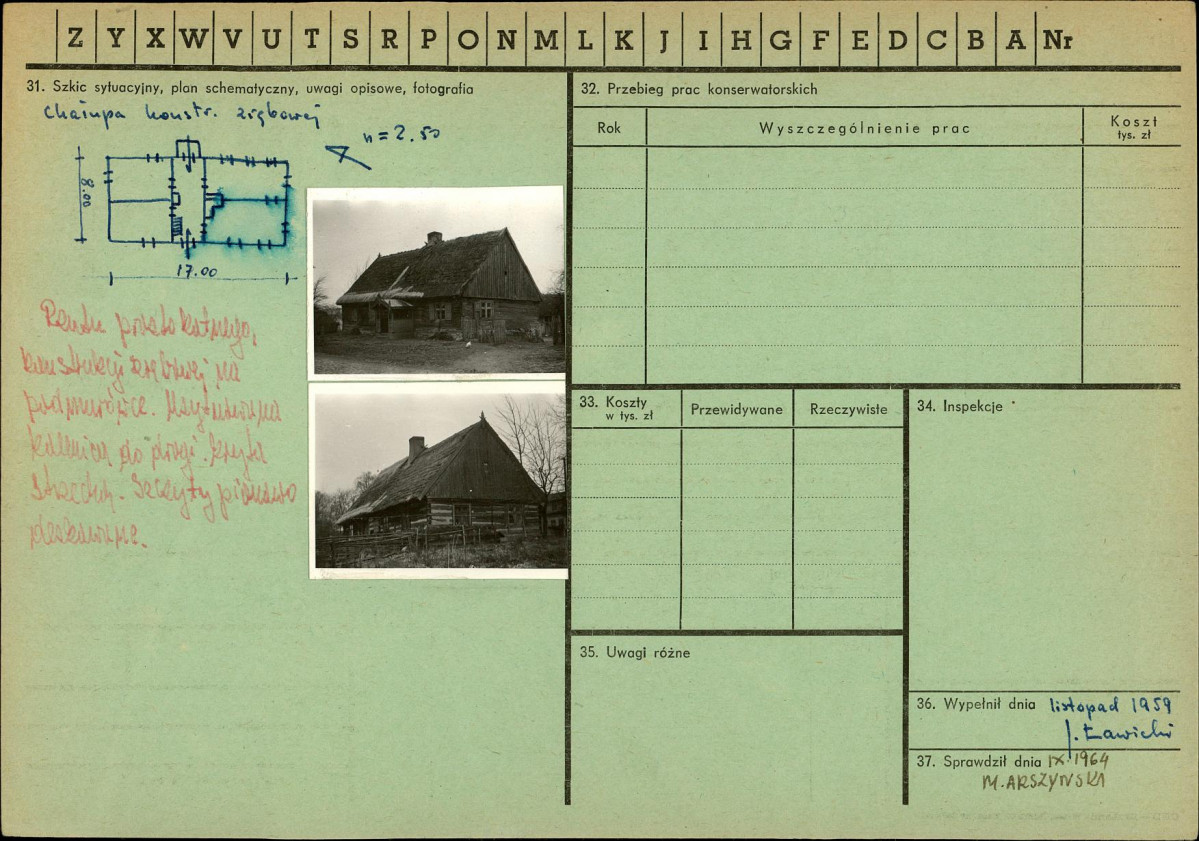 Z Y X W V U T S R P O N M L K J I H G F E D C B A Nr
31. Szkic sytuacyjny, plan schematyczny, uwagi opisowe, fotografia
Chałupa konstr. zrębowej
n = 2.50
8.00
17.00
Rzutu prostokątnego,
konstrukcji zrębowej na
podmurówce. Usytuowana
kalenicą do drogi. Kryta
strzechą. Szczyty pionowo
deskowane.
32. Przebieg prac konserwatorskich
Rok
Wyszczególnienie prac
Koszt
tys. zł
33. Koszty
w tys. zł
Przewidywane
Rzeczywiste
34. Inspekcje
35. Uwagi różne
36. Wypełnił dnia listopad 1959
J. Ławicki
37. Sprawdził dnia IX. 1964
M. ARSZYŃSKI